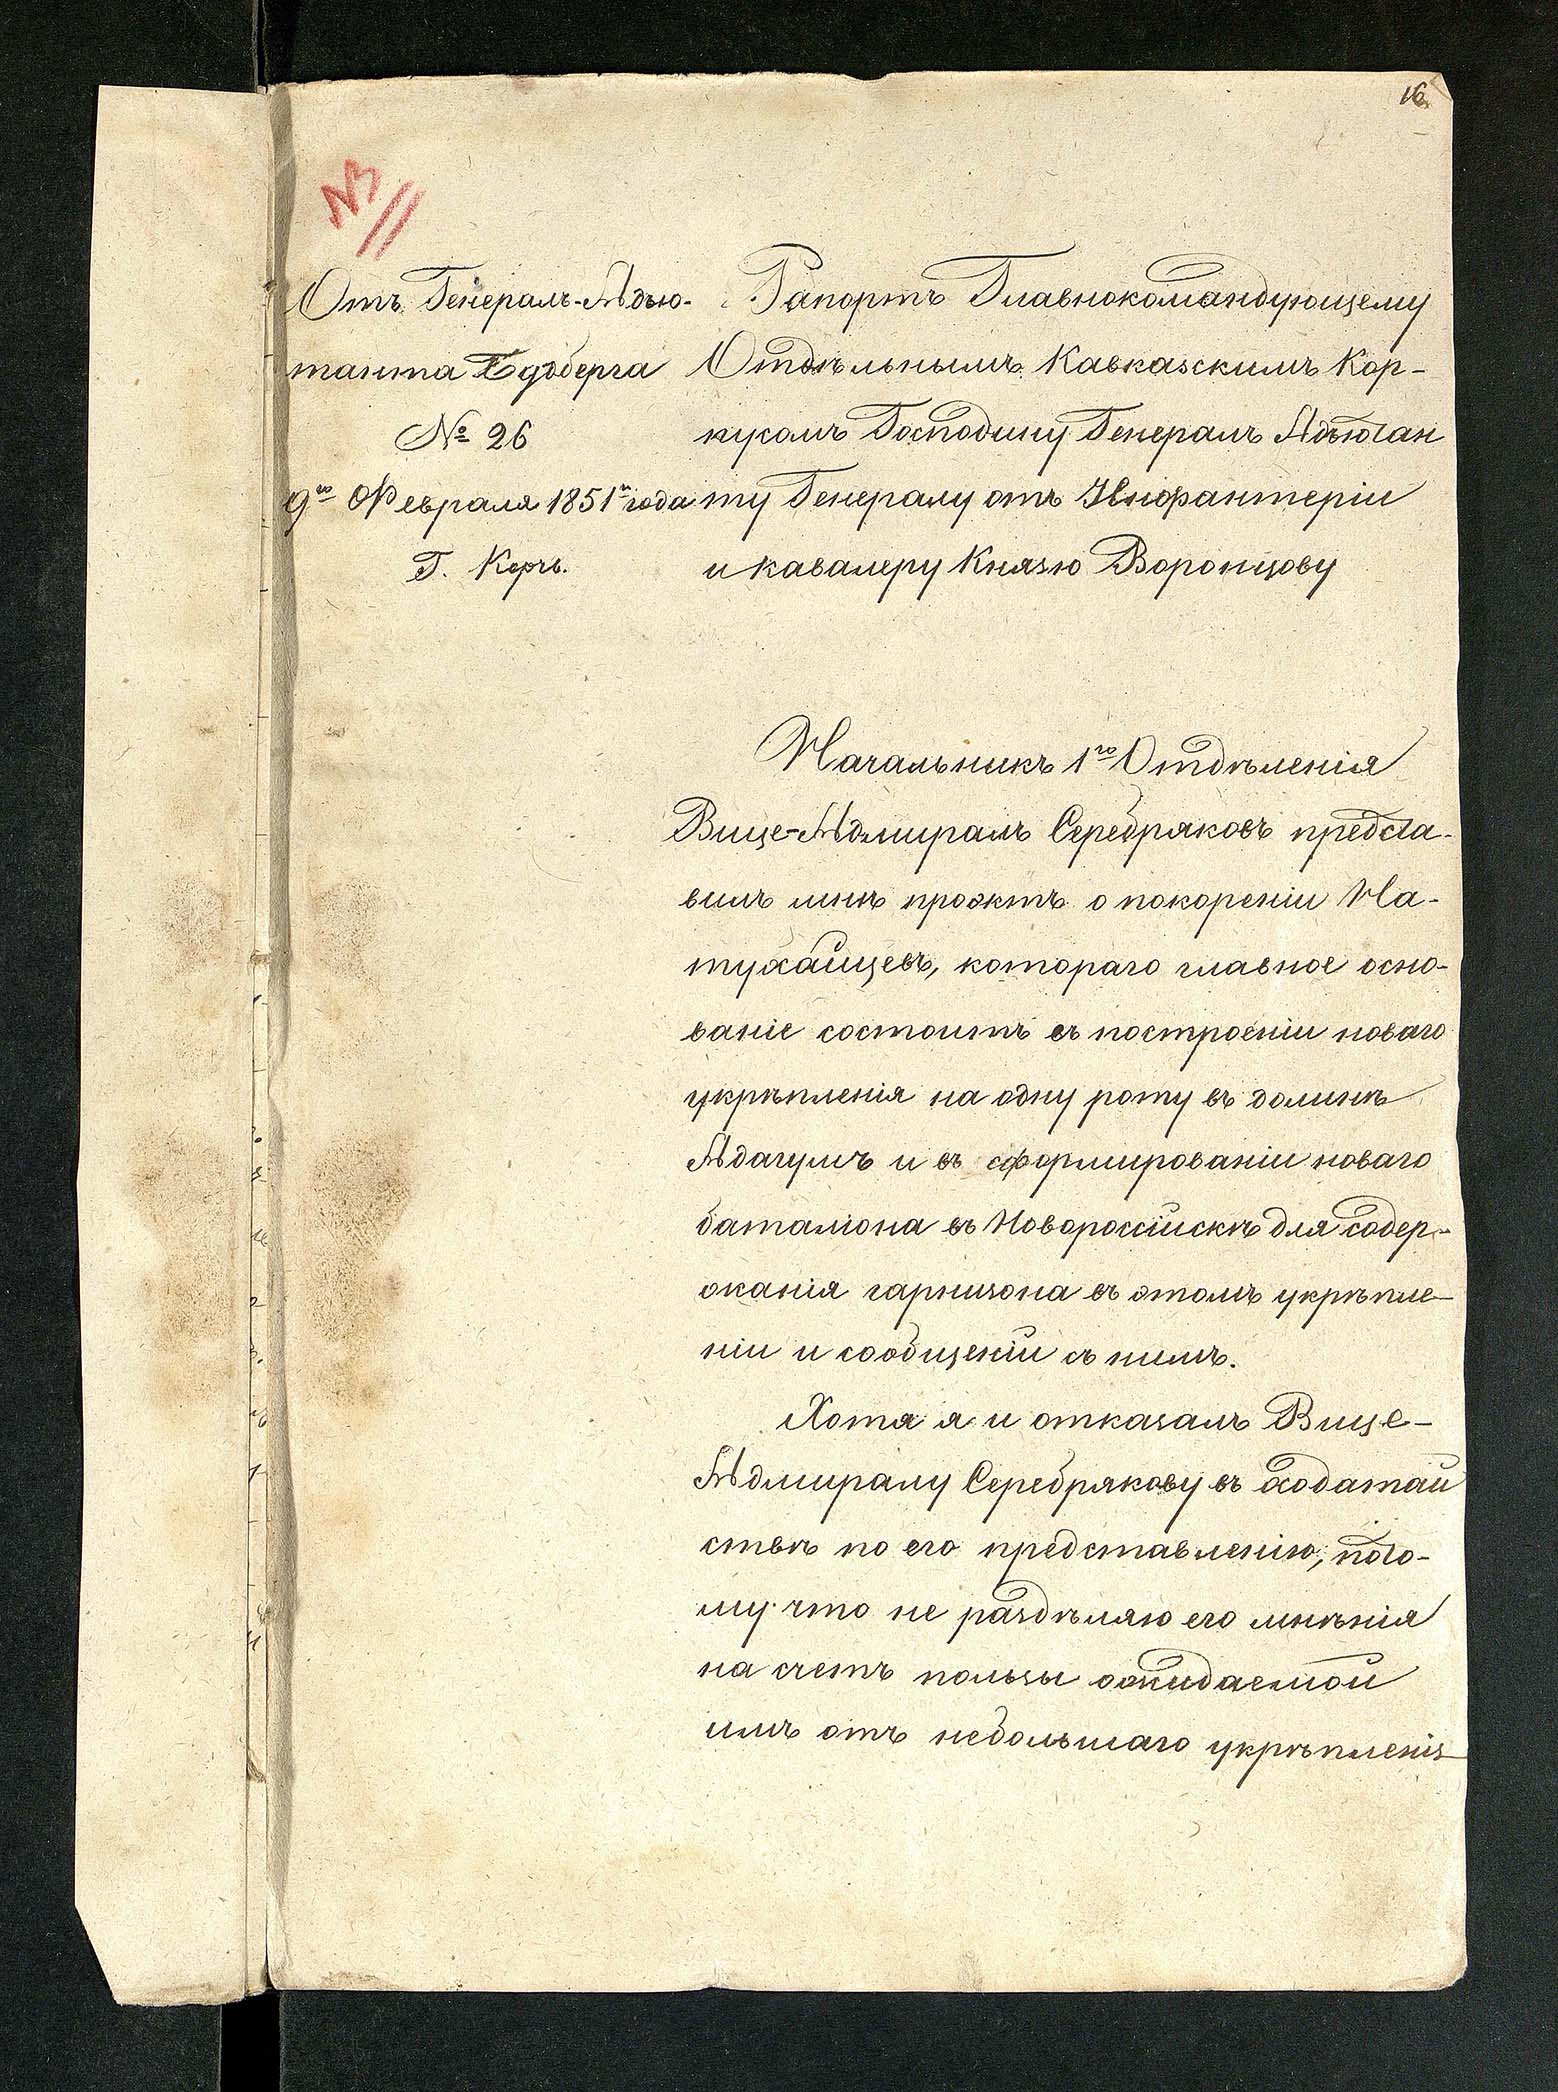 16
№ 11
Отъ Генералъ-Адъю-
танта Будберга
№ 26
9го Февраля 1851го года
Г. Керчь.
Рапортъ Главнокомандующему
Отдѣльнымъ Кавказскимъ Кор-
пусомъ Господину Генералъ Адъютан
ту Генералу отъ Инфантеріи
и кавалеру Князю Воронцову
Начальникъ 1го Отдѣленія
Вице-Адмиралъ Серебряковъ предста-
вилъ мнѣ проэктъ о покореніи На-
тухайцевъ, котораго главное осно-
ваніе состоитъ въ построеніи новаго
укрѣпленія на одну роту въ долинѣ
Адагумъ и въ сформированіи новаго
баталіона въ Новороссійскѣ для содер-
жанія гарнизона въ этомъ укрѣпле-
ніи и сообщеній съ нимъ.
Хотя я и отказалъ Вице-
Адмиралу Серебрякову въ ходатай
ствѣ по его представленію, пото-
му что не раздѣляю его мнѣнія
на счетъ пользы ожидаемой
имъ отъ небольшаго укрѣпленія